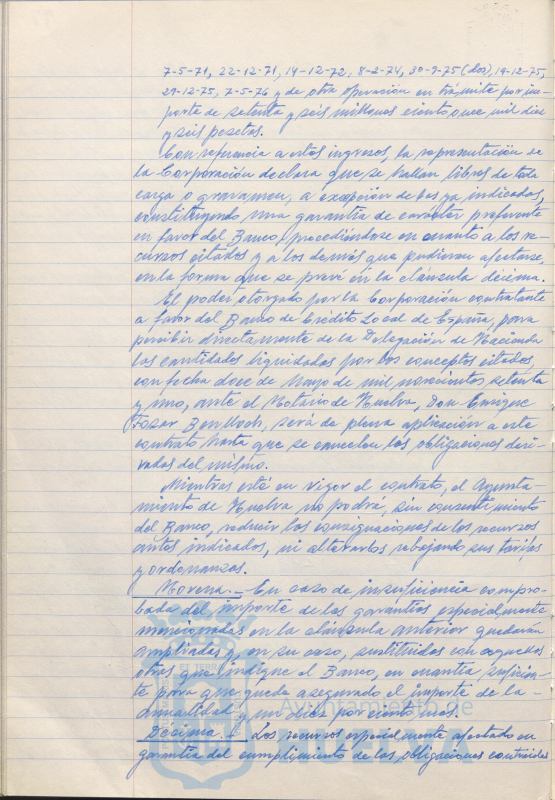 7-5-71, 22-12-71, 14-12-72, 8-2-74, 30-9-75 (dos), 19-12-75,
29-12-75, 7-5-76 y de otra operación en trámite por im-
porte de setenta y seis millones ciento once mil diez
y seis pesetas.
Con referencia a estos ingresos, la representación de
la Corporación declara que se hallan libres de toda
carga o gravamen, a excepción de los ya indicados,
constituyendo una garantía de carácter preferente
en favor del Banco, procediéndose en cuanto a los re-
cursos citados y a los demás que pudieran afectarse,
en la forma que se prevé en la cláusula décima.
El poder otorgado por la Corporación contratante
a favor del Banco de Crédito Local de España, para
percibir directamente de la Delegación de Hacienda
las cantidades liquidadas por los conceptos citados,
con fecha doce de Mayo de mil novecientos setenta
y uno, ante el Notario de Huelva, Don Enrique
será de plena aplicación a este
contrato hasta que se cancelen las obligaciones deri-
vadas del mismo.
Mientras esté en vigor el contrato, el Ayunta-
miento de Huelva no podrá, sin consentimiento
del Banco, reducir las consignaciones de los recursos
antes indicados, ni alterarlos rebajando sus tarifas
y ordenanzas.
Novena.- En caso de insuficiencia compro-
bada del importe de las garantías especialmente
mencionadas en la cláusula anterior quedarán
ampliadas y en su caso, sustituidas con aquellas
otras que indique el Banco, en cuantía suficien-
te para que quede asegurado el importe de la
anualidad y un diez por ciento más.
Décima.- Los recursos especialmente afectados en
garantía del cumplimiento de las obligaciones contraídas
EL TERRAE
Ayuntamiento de
HUELVA